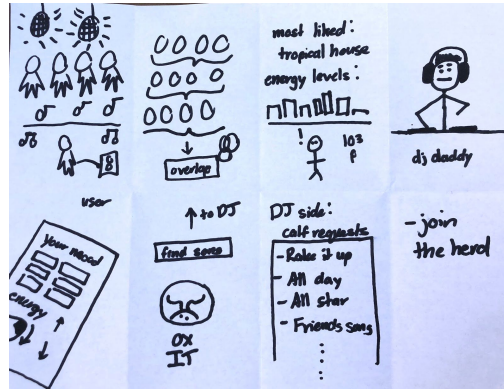 overlap
most liked:
tropical house
energy levels:
!
103
F
dj daddy
user
Your mood
energy
↑ to DJ
find song
OX
IT
DJ side:
calf requests
- Rake it up
- All day
- All star
- Friends song
- join
the herd